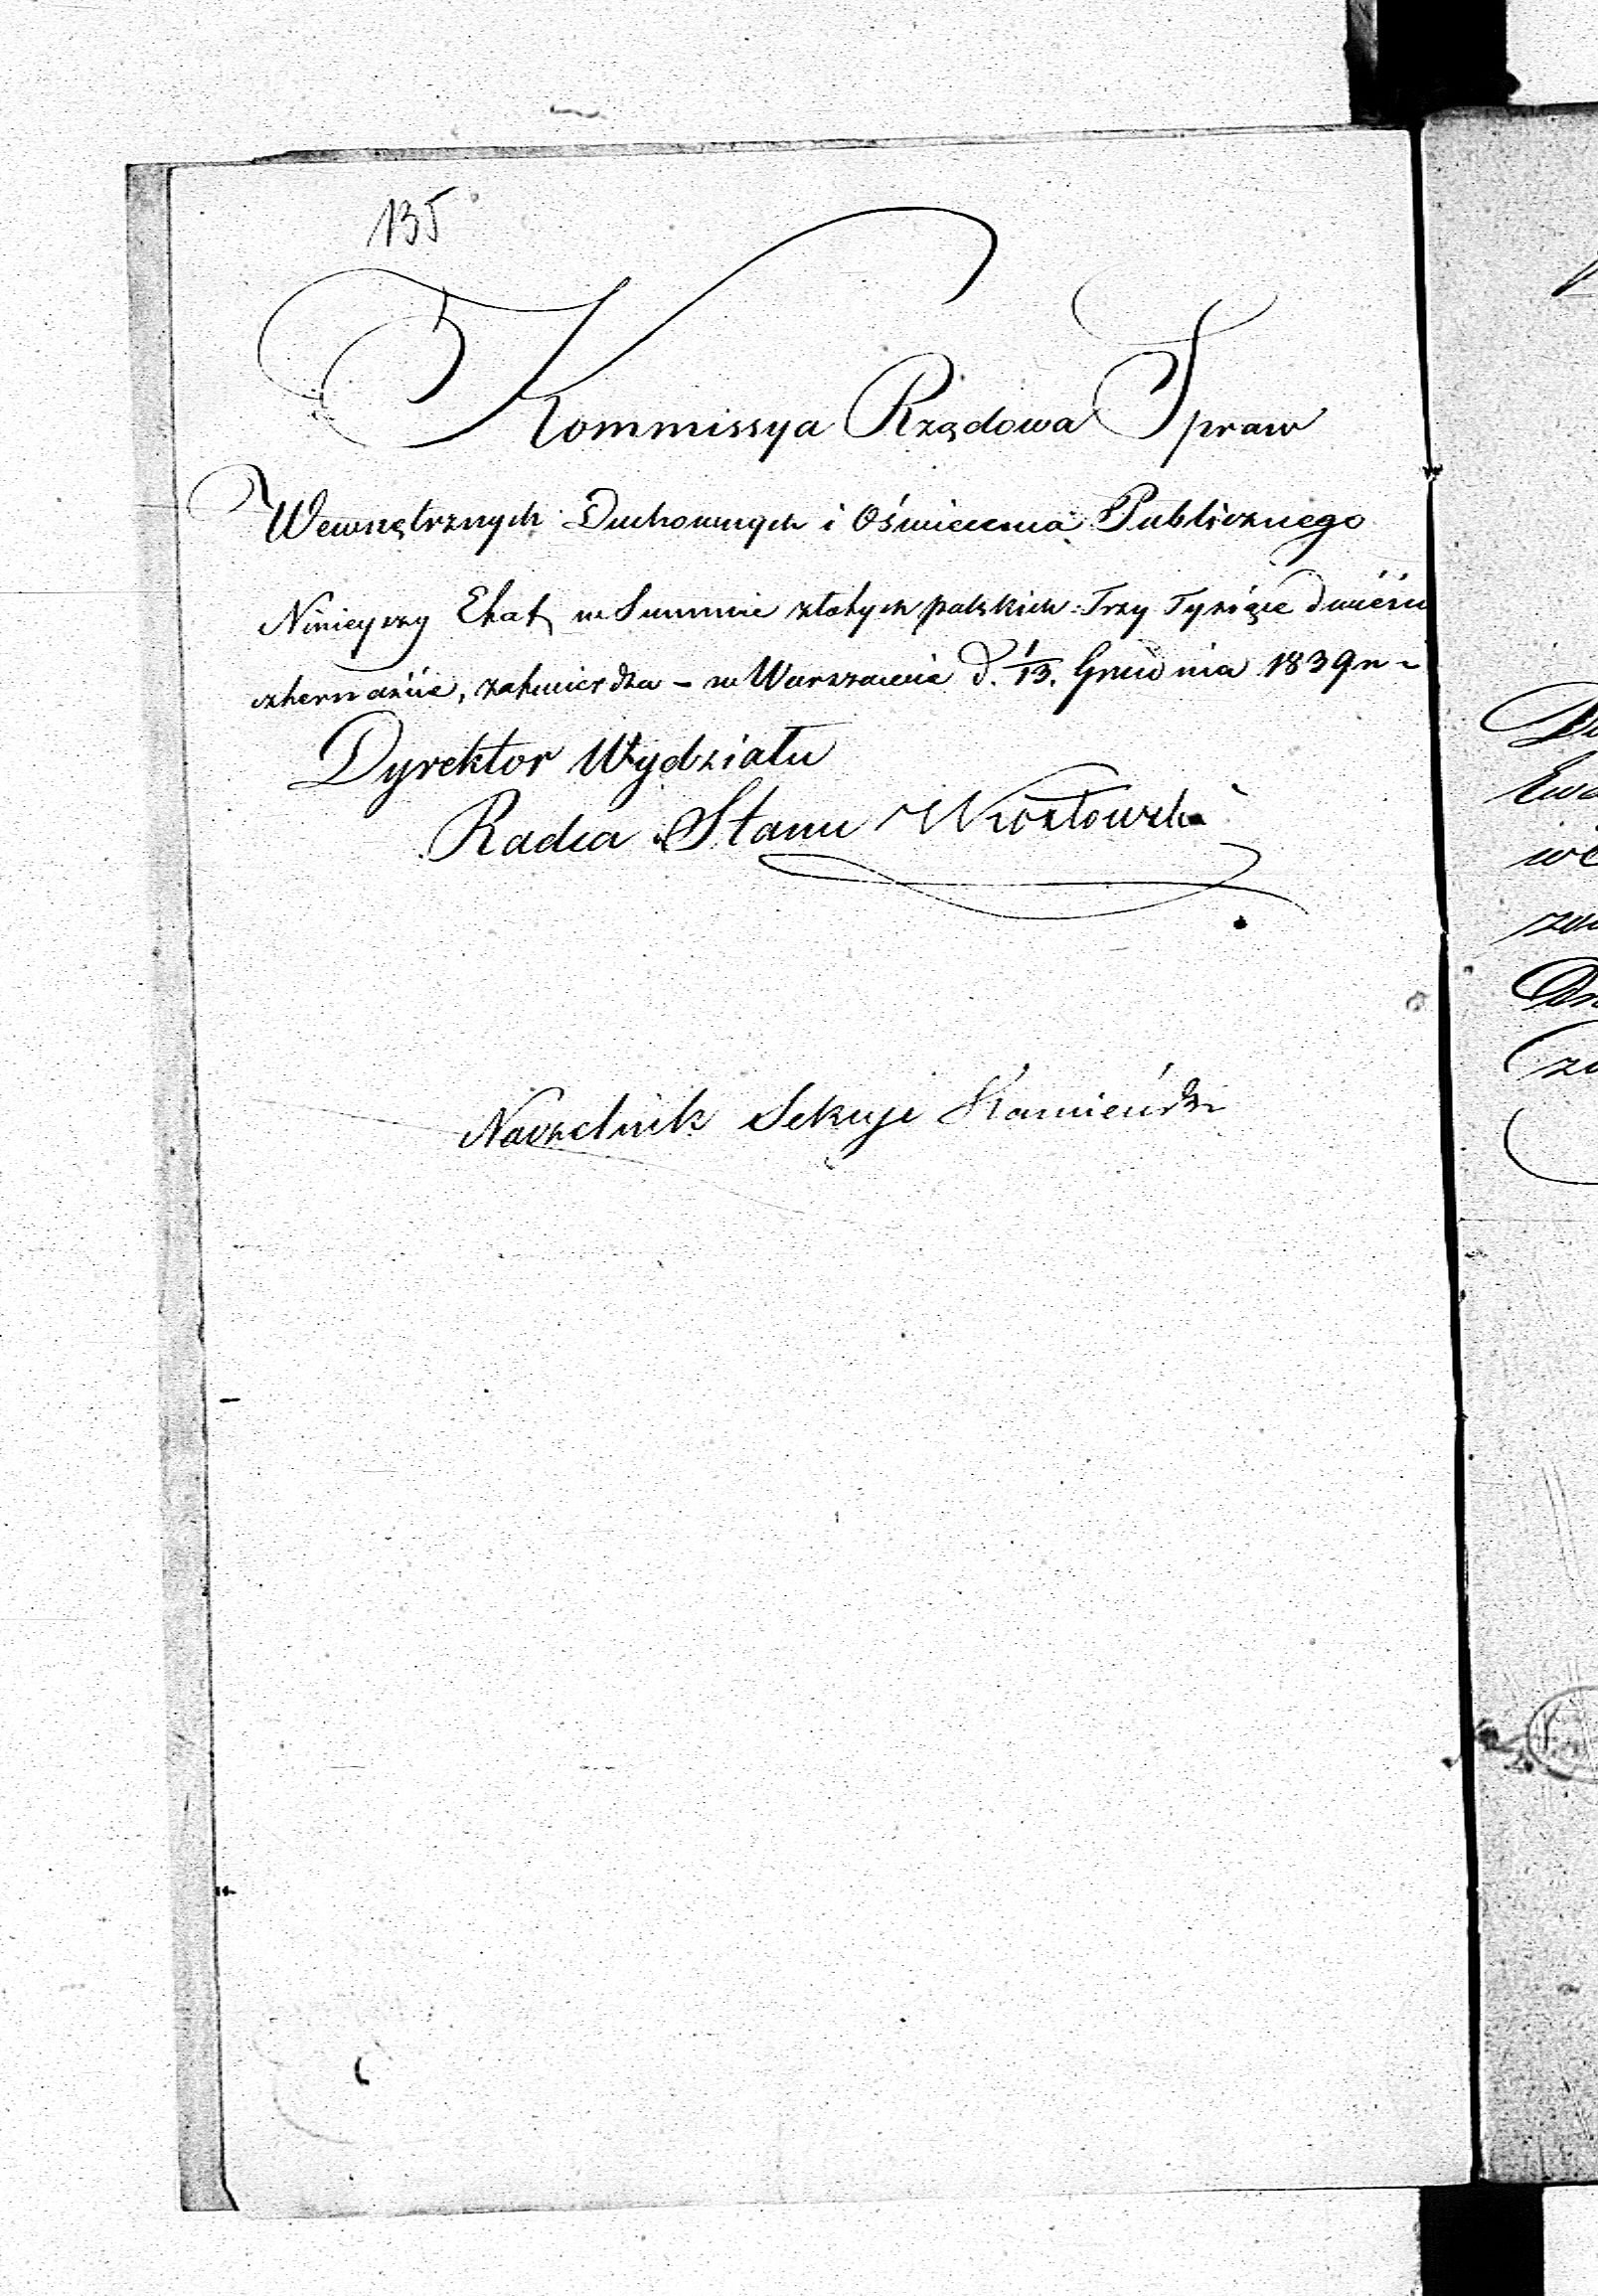 135
Kommissya Rządowa Spraw
Wewnętrznych Duchownych i Oświecenia Publicznego
Ninieyszy Etat w Summie złotych polskich Trzy Tysiące dwieście
czternaście, zatwierdza – w Warszawie d. 1/13. Grudnia 1839 r –
Dyrektor Wydziału
Radca Stanu Kozłowski
Naczelnik Sekcyi Kamieński